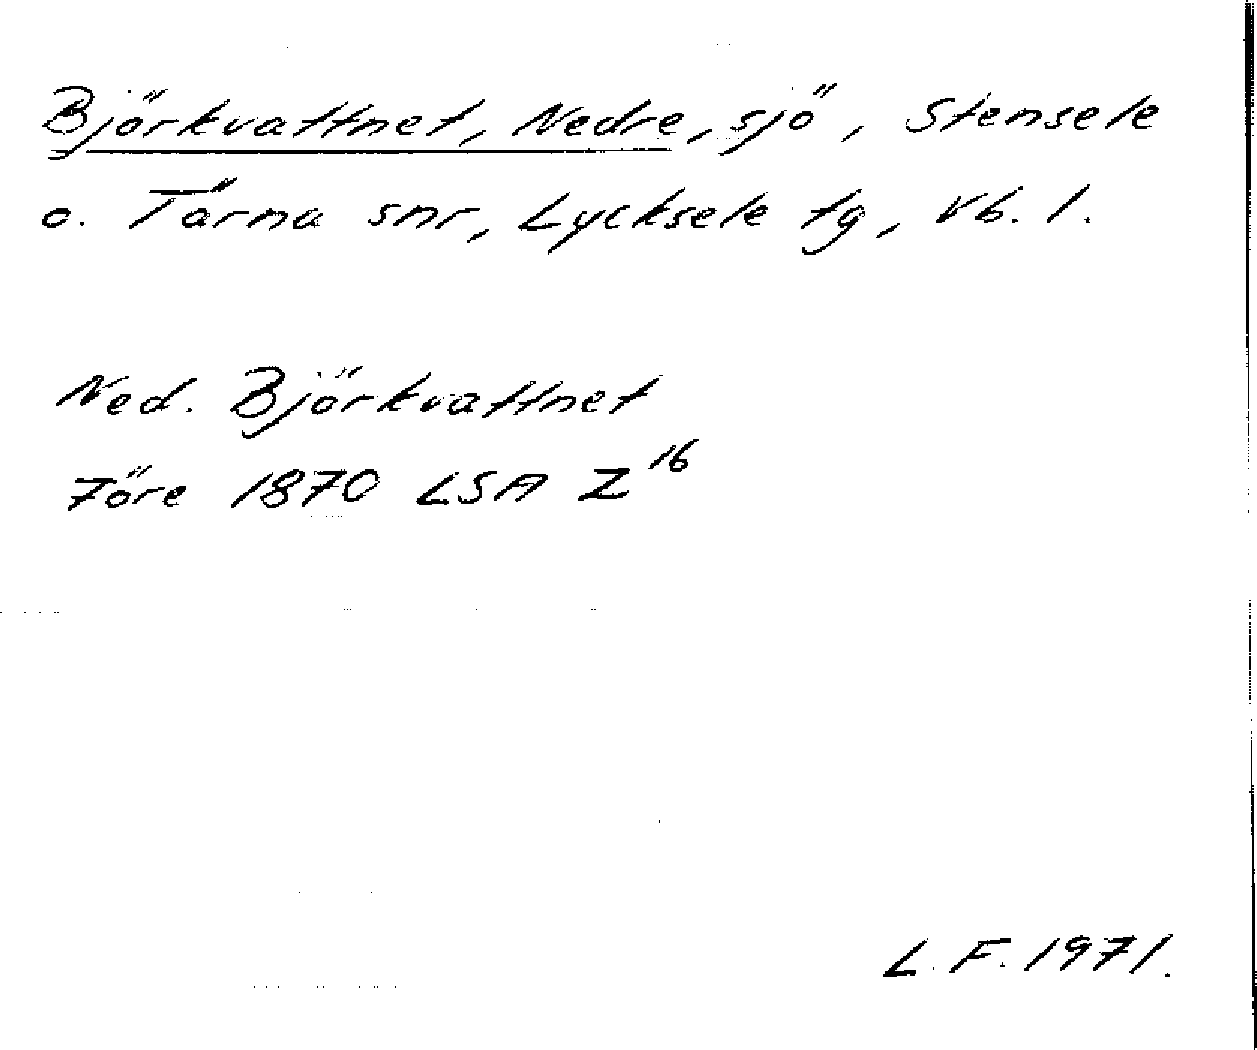 Björkvattnet, Nedre, sjö, Stensele
o. Tärna snr, Lycksele tg, Vb. l.
Ned. Björkvattnet
Före 1870 LSA Z¹⁶
L. F. 1971.